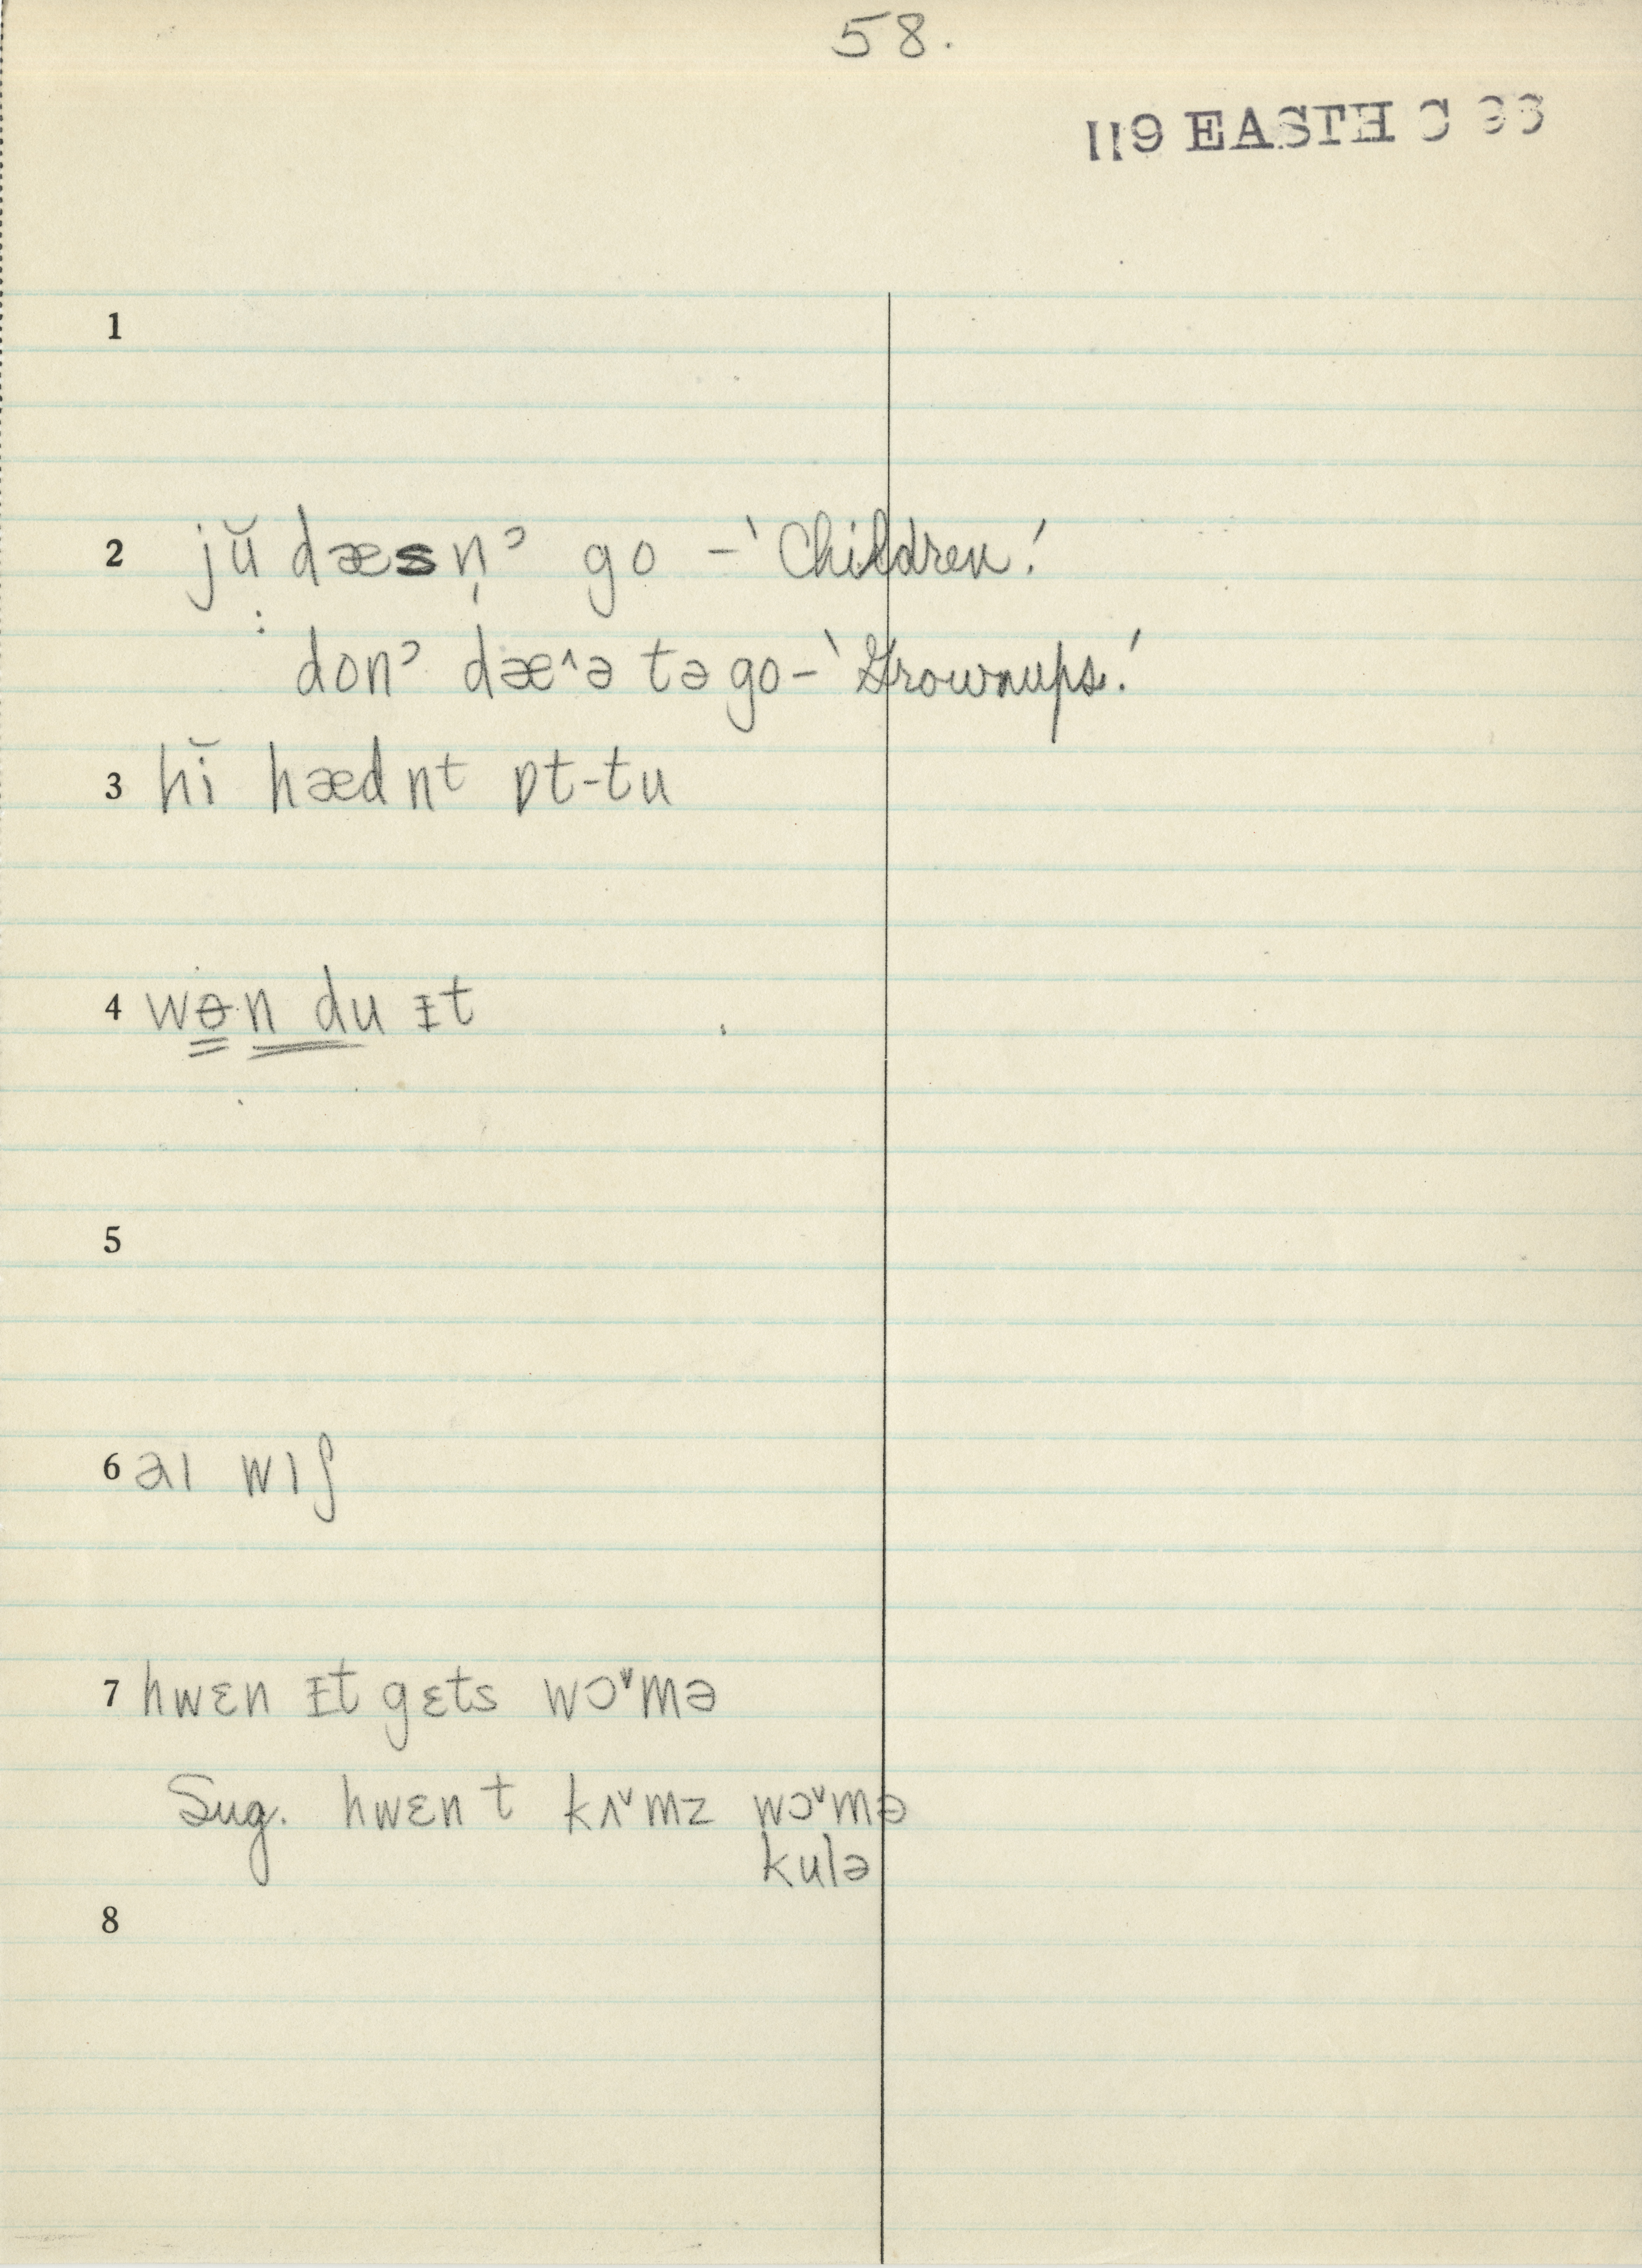 58.
119 EASTH C 33
1
2 jŭ dæsn̩ˀ go – 'Children.'
: donˀ dæ^ə tə go – 'Grownups.'
3 hĭ hædnt ɒt-tu
4 wɵn du ᵻt
5
6 aɪ wɪʃ
7 hwɛn ᵻt gɛts wɔᵛmə
Sug. hwɛn t kʌᵛmz wɔᵛmə
kulə
8